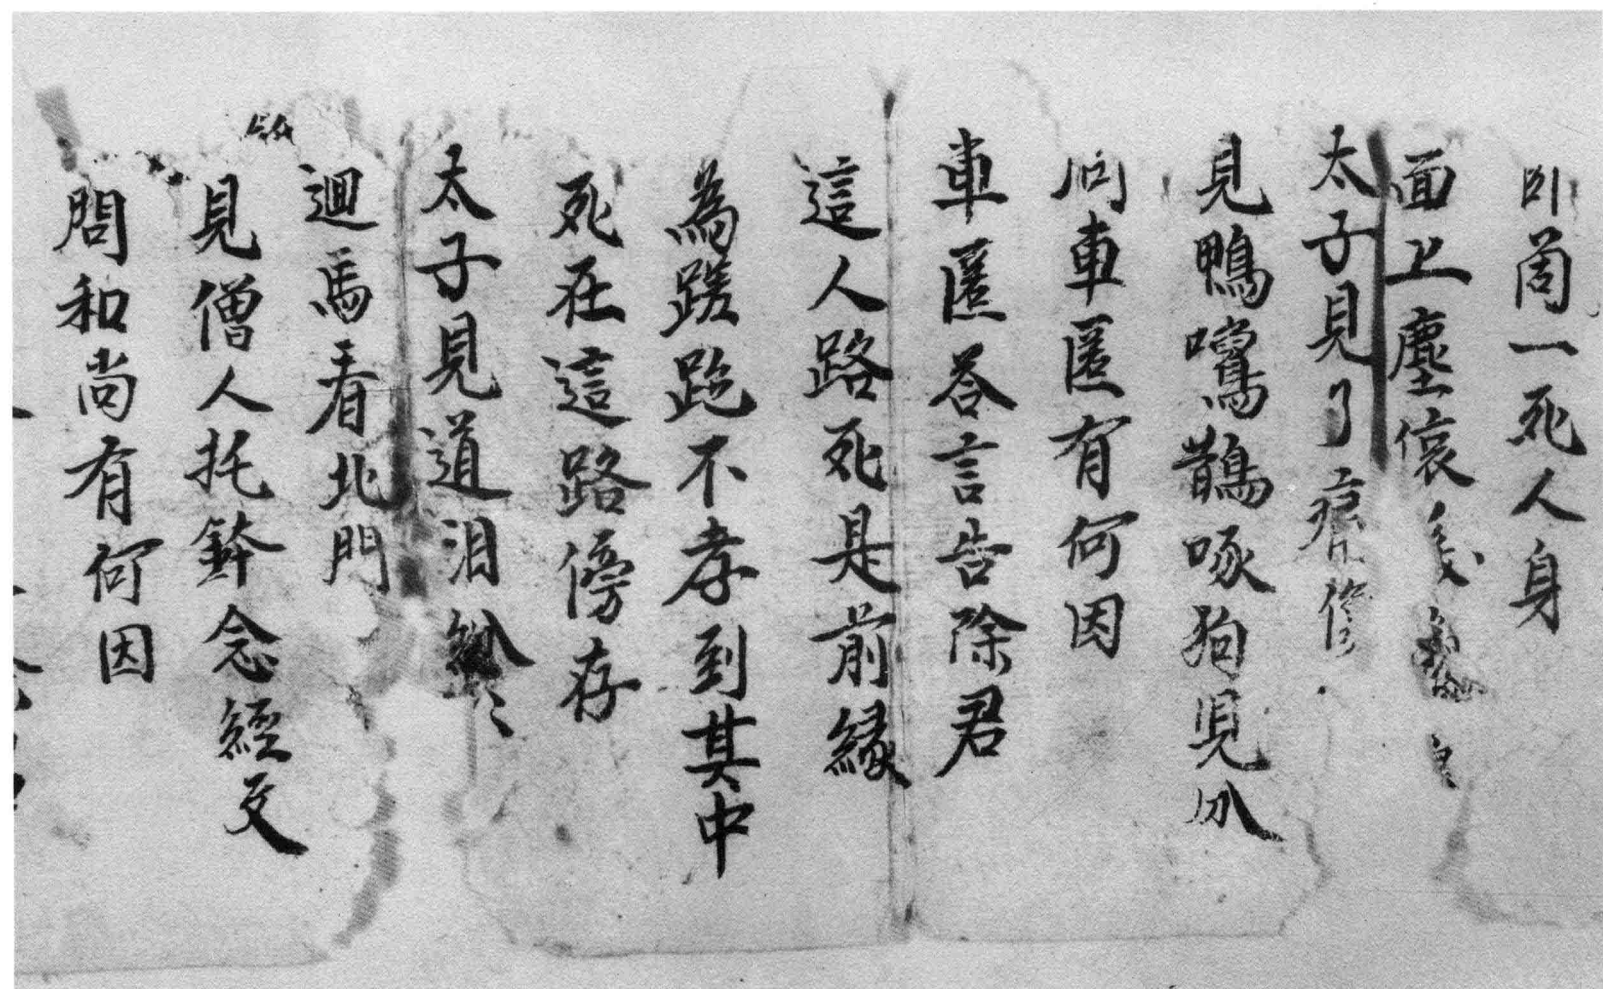 卧啇一死人身
面上塵㒟
太子見了
見鴨鵲啄狗見
问車匿有何因
車匿答言告除君
這人路死是前緣
為蹉跎不孝到其中
死在這路傍存
太子見道泪紛〻
迴馬看北門
見僧人托鉢念經文
問和尚有何因